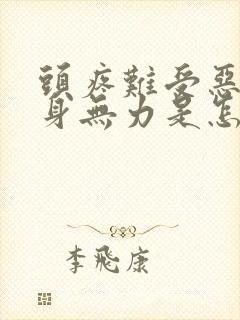 頭疼難受惡
身無力是怎
李飛康